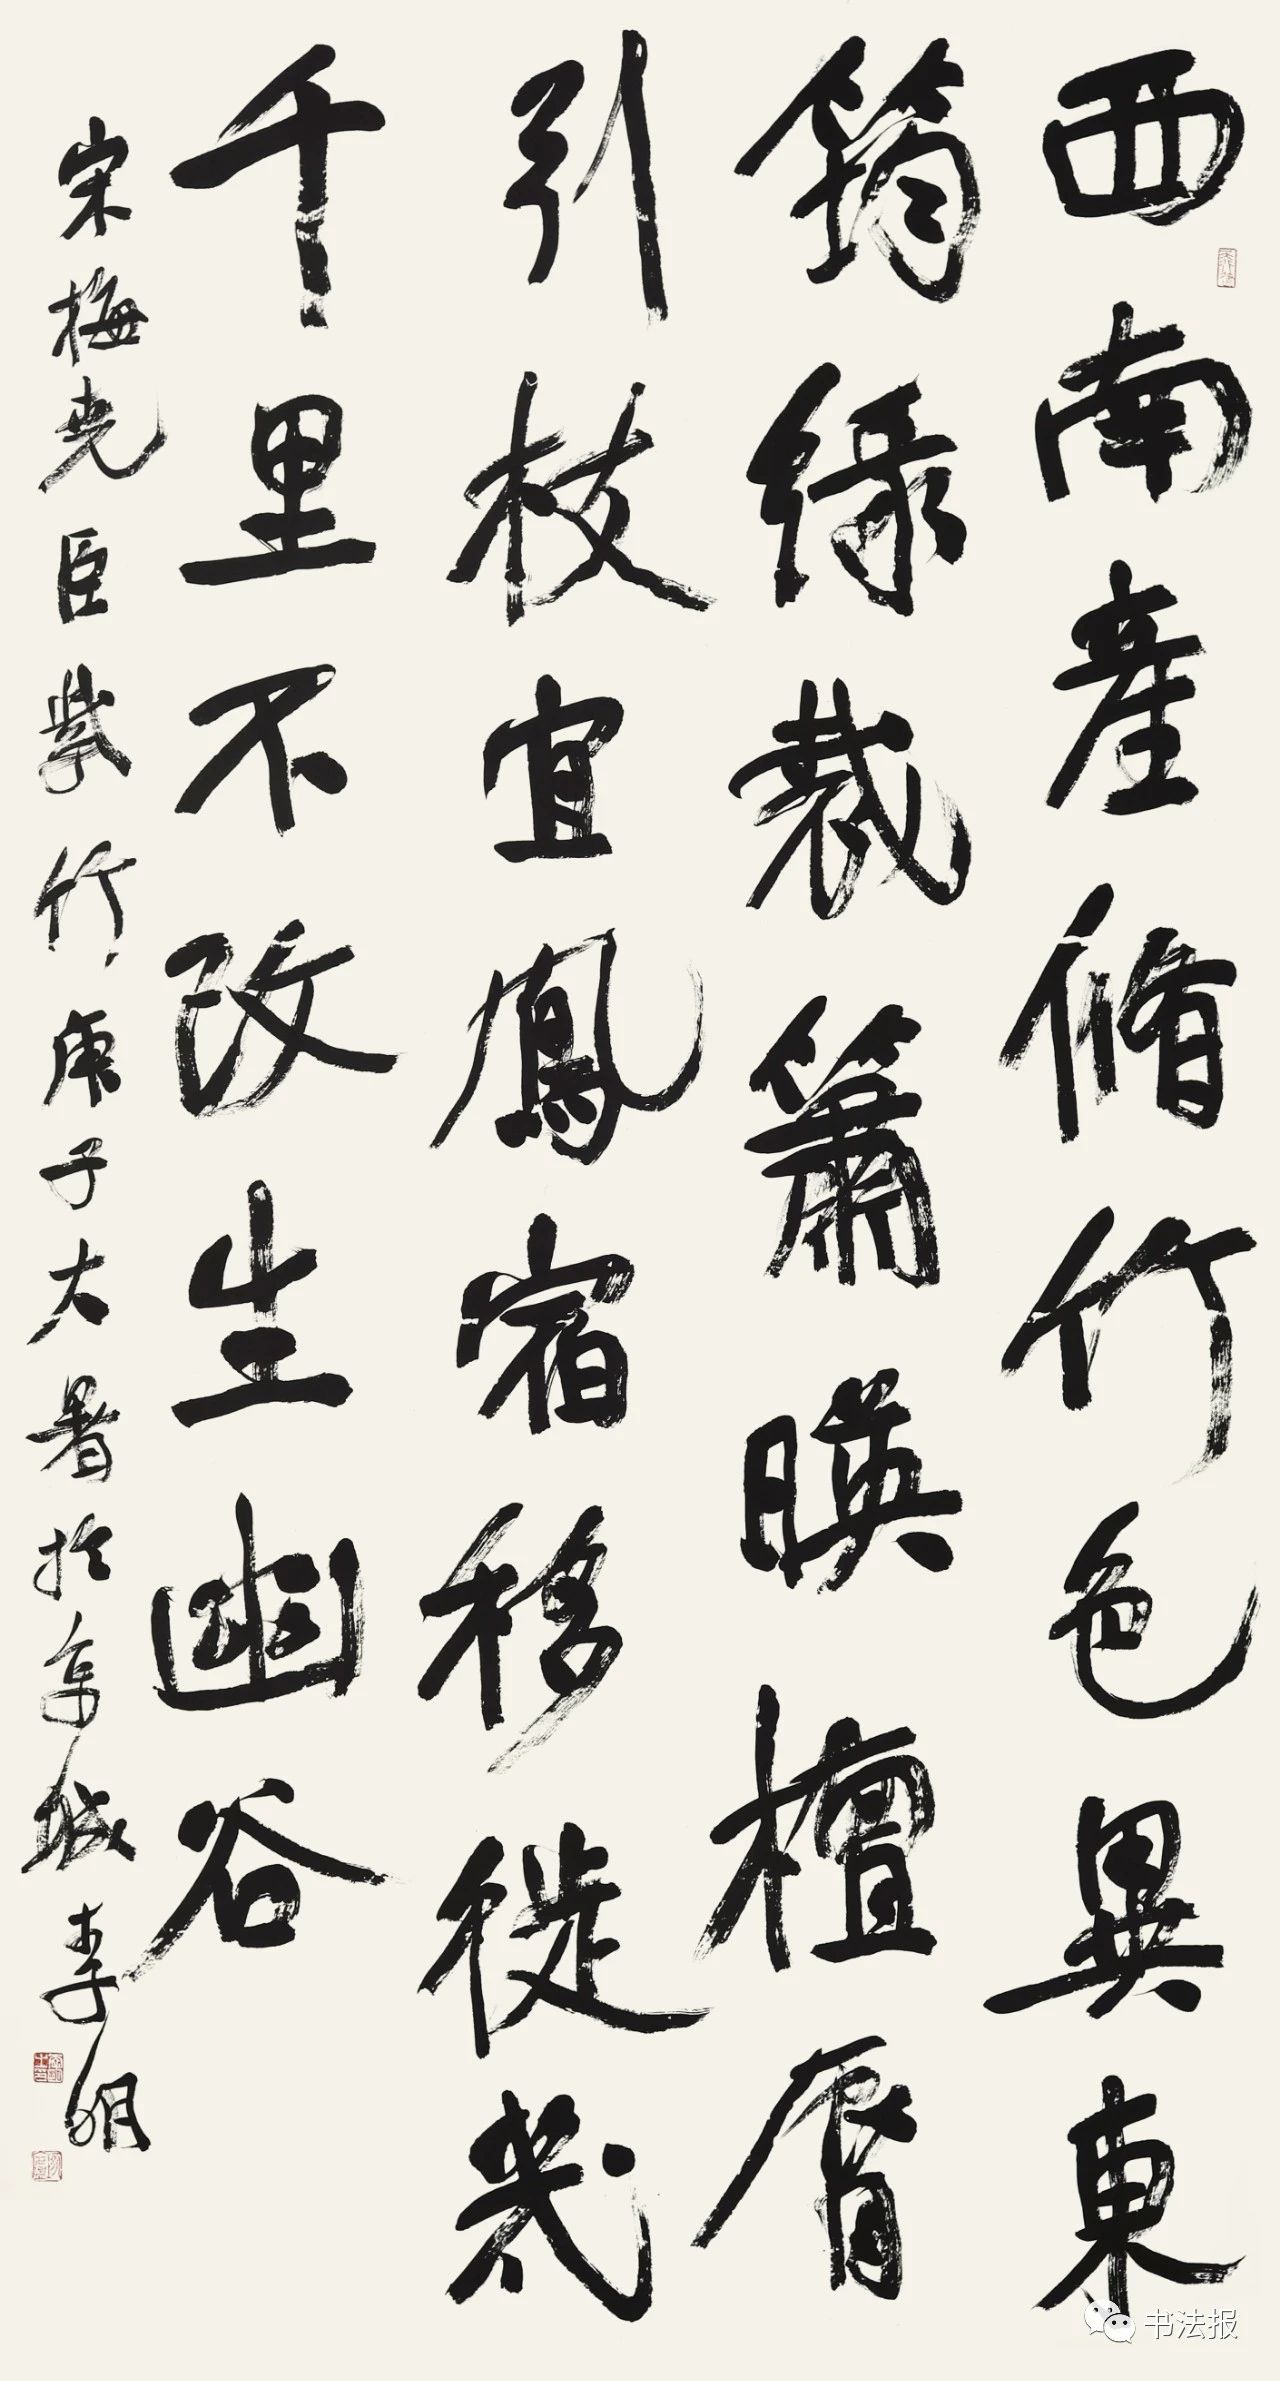 西南產脩竹色異東
筠綠裁簫暎檀脣
引枝宜鳳宿移徙幾
千里不改生幽谷
宋梅堯臣紫竹庚子大暑於京城李明
书法报